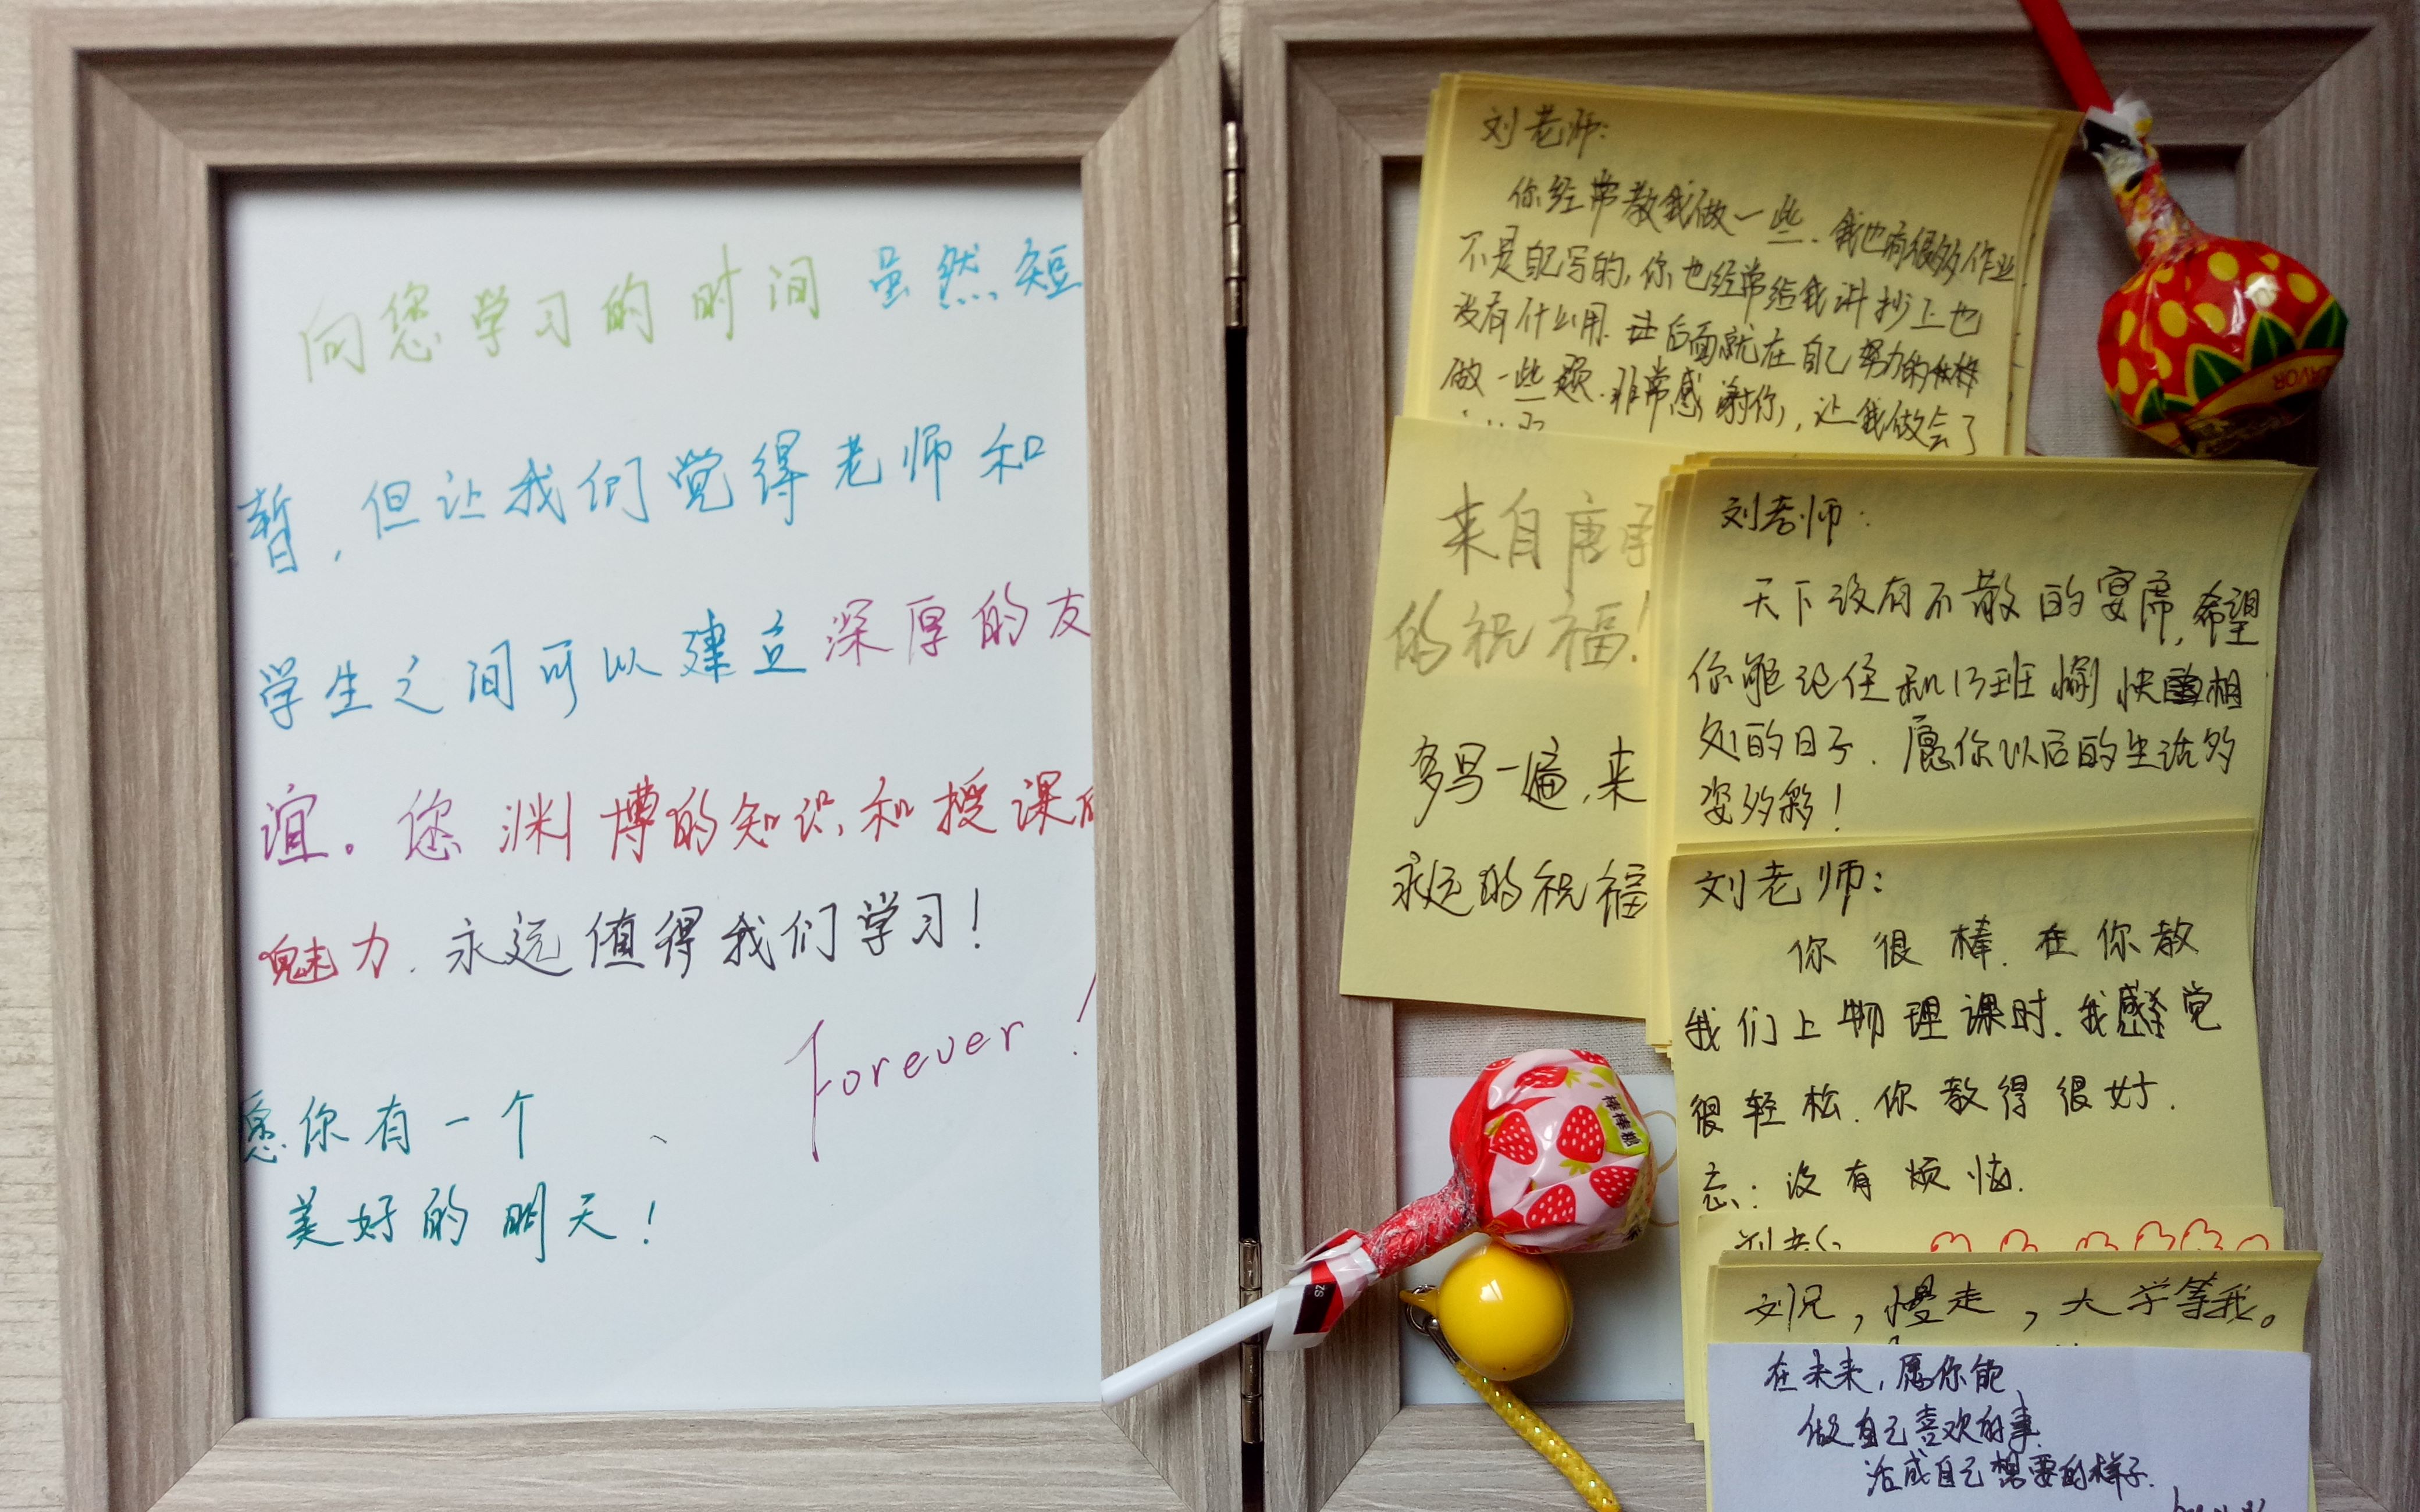 向您学习的时间 虽然短
暂，但让我们觉得老师和
学生之间可以建立深厚的友
谊。您渊博的知识和授课的
魅力.永远值得我们学习！
Forever！
愿你有一个
美好的明天！
刘老师：
你经常教我做一些.我也有很多作业
不是自己写的,你也经常给我讲抄上也
没有什么用.后面就在自己努力的
做一些题.非常感谢你,让我做会了
来自唐
的祝福！
多写一遍,来
永远的祝福
刘老师：
天下没有不散的宴席,希望
你能记住和13班愉快相
处的日子.愿你以后的生活多
姿多彩！
刘老师：
你很棒.在你教
我们上物理课时.我感觉
很轻松.你教得很好.
忘：没有烦恼.
刘老
刘兄，慢走，大学等我。
在未来,愿你能
做自己喜欢的事
活成自己想要的样子.
棒棒糖
ZS